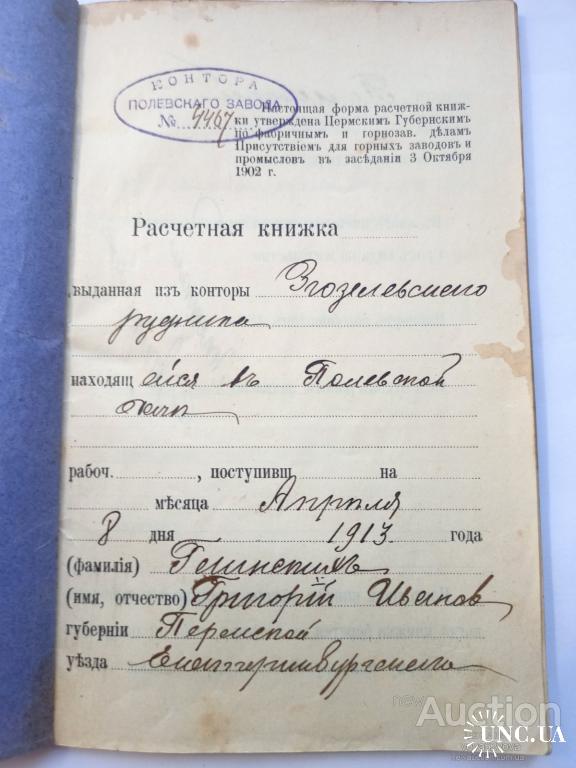 КОНТОРА
ПОЛЕВСКАГО ЗАВОДА
№ 4467
Настоящая форма расчетной книж-
ки утверждена Пермским Губернским
по фабричным и горнозав. дѣлам
Присутствіем для горных заводов и
промыслов в засѣданіи 3 Октября
1902 г.
Расчетная книжка
выданная изъ конторы
рудника
находящ ейся въ Полевской
дачи
рабоч. , поступивш на
мѣсяца Апрѣля
8 дня 1913 года
(фамилія)
(имя, отчество) Григорій Иванов
губерніи Пермской
уѣзда Екатеринбургскаго
Auction
UNC.UA